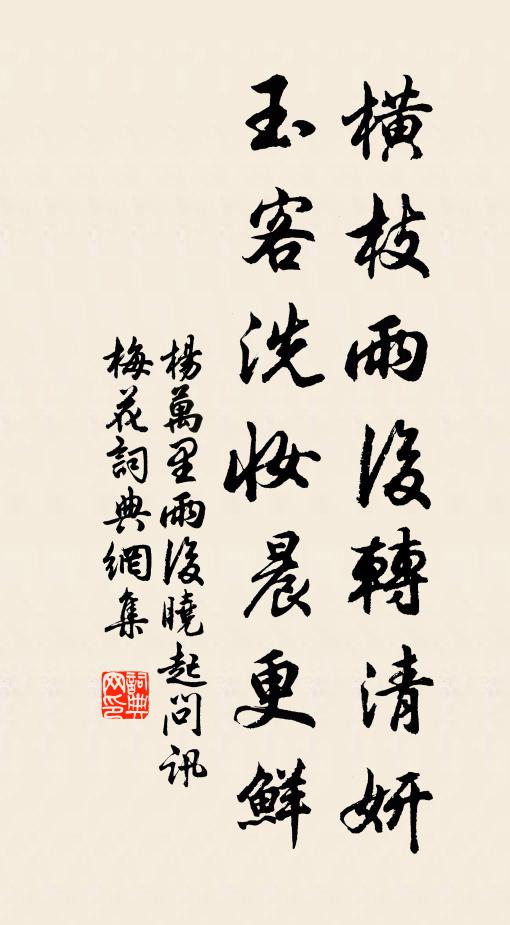 橫枝雨後轉清妍
玉客洗妝晨更鮮
楊萬里雨後曉起問訊
梅花詞典網集
詞典网印